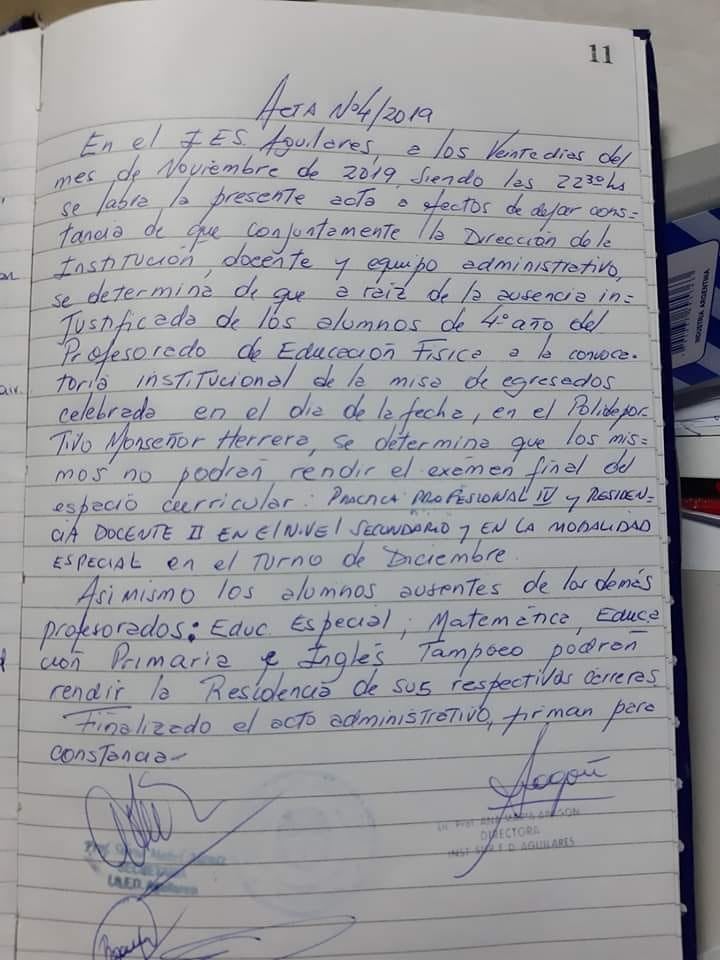 11
Acta Nº4/2019
En el I.E.S. Aguilares, a los Veinte dias del
mes de Noviembre de 2019, siendo las 22³⁰ hs
se labra la presente acta a efectos de dejar cons=
tancia de que conjuntamente la Dirección de la
Institución, docente y equipo administrativo,
se determina de que a raiz de la ausencia in=
justificada de los alumnos de 4º año del
Profesorado de Educación Fisica a la convoca-
toria institucional de la misa de egresados
celebrada en el dia de la fecha, en el Polidepor
tivo Monseñor Herrera, se determina que los mis=
mos no podrán rendir el exámen final del
espacio curricular: PRACTICA PROFESIONAL IV y RESIDEN-
CIA DOCENTE II EN El NIVEL SECUNDARIO y EN LA MODALIDAD
ESPECIAL en el Turno de Diciembre.
Asi mismo los alumnos ausentes de los demás
profesorados: Educ. Especial; Matemática, Educa
ción Primaria e Inglés Tampoco podrán
rendir la Residencia de sus respectivas carreras
Finalizado el acto administrativo, firman para
constancia-
Aragón
Lic. Prof. ANA MARIA ARAGON
DIRECTORA
INST. SUP. E. D. AGUILARES
Prof.
SECRETARIA
I.A.E.D. Aguilares
INDUSTRIA ARGENTINA